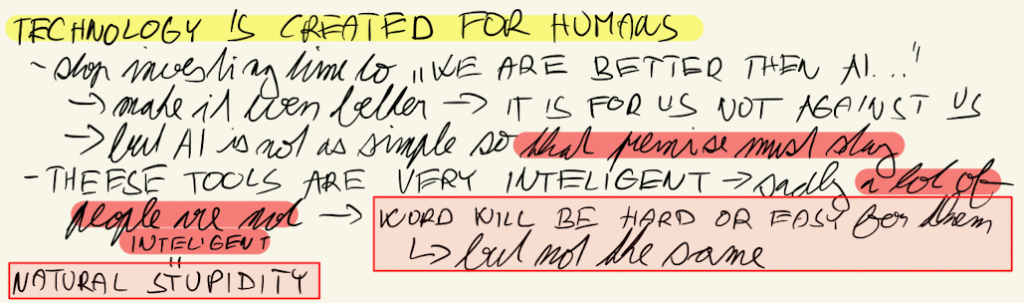 TECHNOLOGY IS CREATED FOR HUMANS
- stop investing time to „WE ARE BETTER THEN AI..."
→ make it even better → IT IS FOR US NOT AGAINST US
→ but AI is not as simple so that premise must stay
- THEESE TOOLS ARE VERY INTELIGENT → sadly a lot of
people are not → WORD WILL BE HARD OR EASY for them
INTELIGENT ↳ but not the same
"
NATURAL STUPIDITY